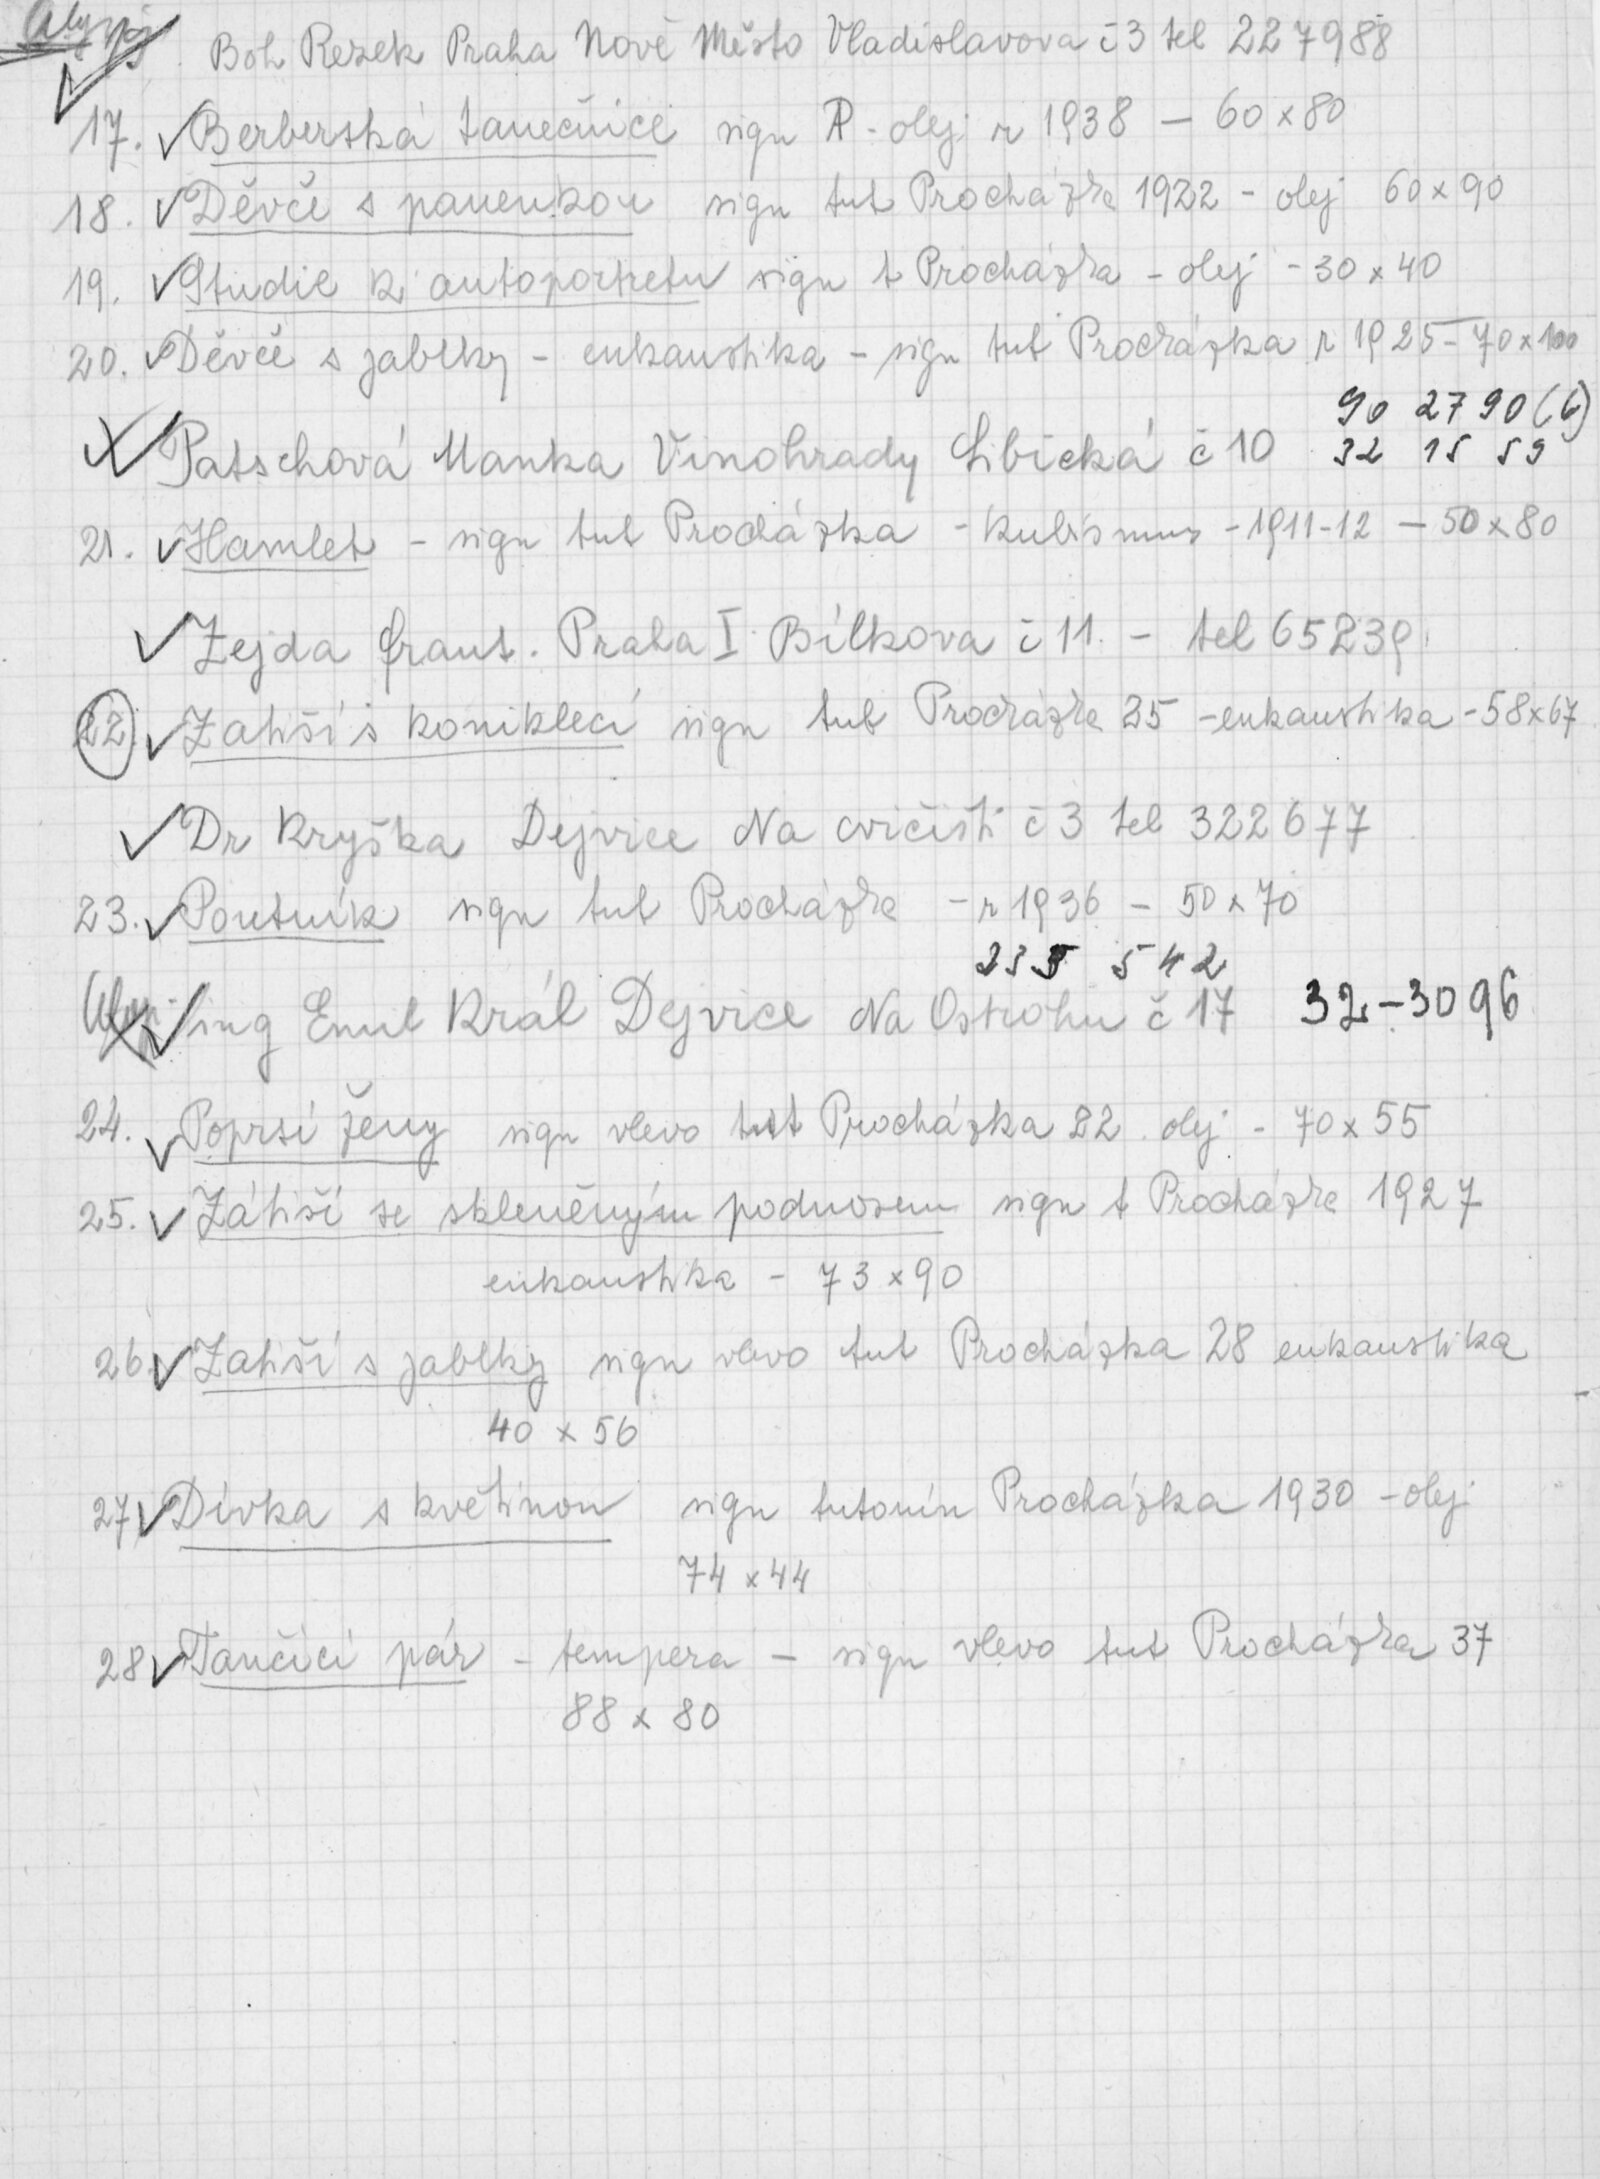 Boh Rezek Praha Nové Město Vladislavova č 3 tel 227988
17. Berberská tanečnice sign P - olej r 1938 — 60 x 80
18. Děvče s panenkou sign Ant Procházka 1922 - olej 60 x 90
19. Studie k autoportretu sign A Procházka - olej - 30 x 40
20. Děvče s jablky - enkaustika - sign Ant Procházka r 1925 - 70 x 100
90 2790 (6)
Patschová Manka Vinohrady Libická č 10 32 15 59
21. Hamlet - sign Ant Procházka - Kubismus - 1911-12 — 50 x 80
Zejda Frant. Praha I Bílkova č 11. - tel 65239
22. Zátiší s koniklecí sign Ant Procházka 25 - enkaustika - 58 x 67
Dr Kryška Dejvice Na cvičišti č 3 tel 322677
23. Poutník sign Ant Procházka - r 1936 - 50 x 70
235 542
ing Emil Král Dejvice Na Ostrohu č 17 32-3096
24. Poprsí ženy sign vlevo Ant Procházka 22 olej - 70 x 55
25. Zátiší se skleněným podnosem sign A Procházka 1927
enkaustika - 73 x 90
26. Zátiší s jablky sign vlevo Ant Procházka 28 enkaustika
40 x 56
27. Dívka s květinou sign Antonín Procházka 1930 - olej
74 x 44
28. Tančící pár - tempera - sign vlevo Ant Procházka 37
88 x 80